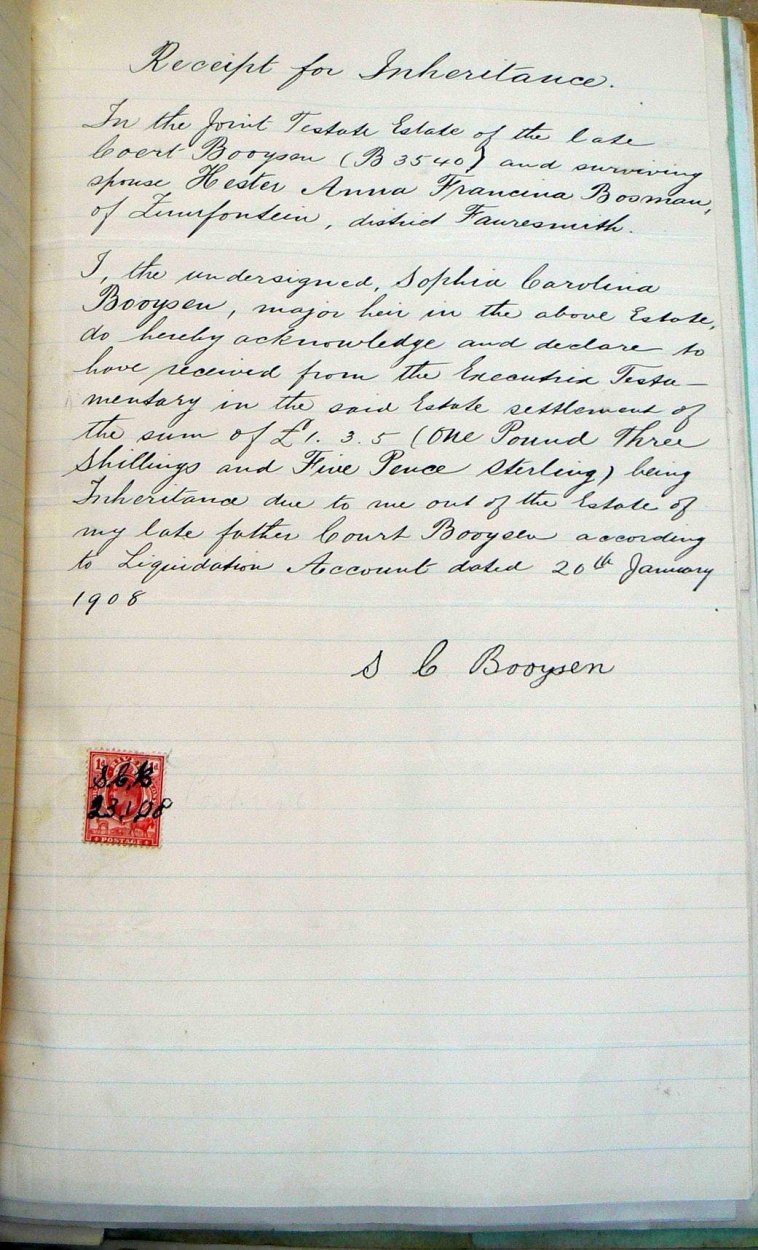 Receipt for Inheritance.
In the Joint Testate Estate of the late
Coert Booysen (B 3540) and surviving
spouse Hester Anna Francina Bosman,
of Zuurfontein, district Fauresmith.
I, the undersigned, Sophia Carolina
Booysen, major heir in the above Estate,
do hereby acknowledge and declare to
have received from the Executrix Testa-
mentary in the said Estate settlement of
the sum of £1. 3. 5 (One Pound Three
Shillings and Five Pence Sterling) being
Inheritance due to me out of the Estate of
my late father Court Booysen according
to Liquidation Account dated 20th January
1908
S C Booysen
S.C.B
23.1.08
POSTAGE